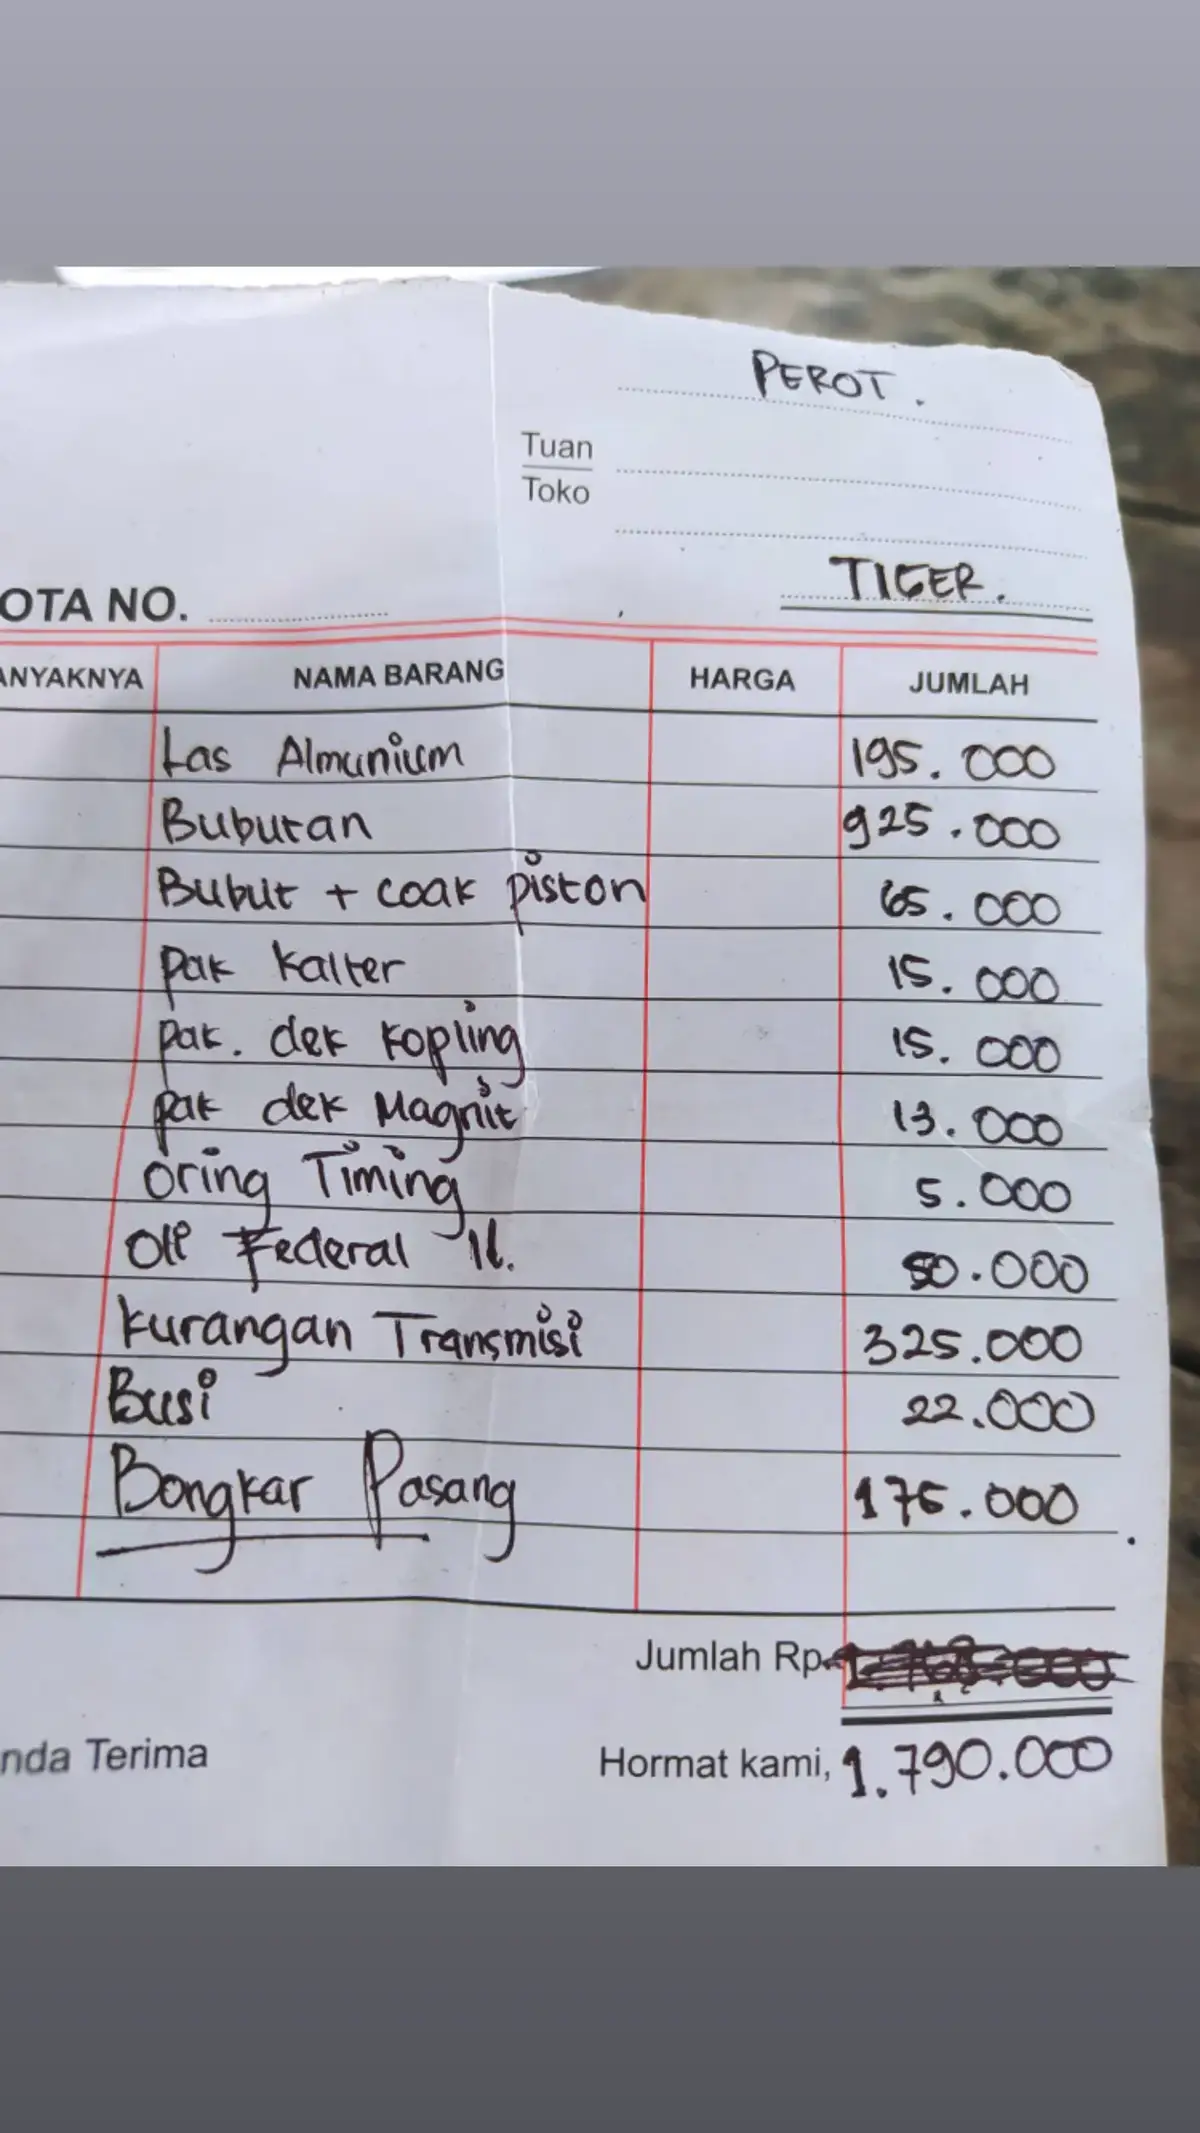 PEROT.
Tuan
Toko
TIGER.
OTA NO.
ANYAKNYA NAMA BARANG HARGA JUMLAH
Las Almunium 195.000
Bubutan 925.000
Bubut + coak piston 65.000
pak kalter 15.000
pak. dek kopling 15.000
pak dek Magnit 13.000
oring Timing 5.000
Oli Federal 1l. 50.000
kurangan Transmisi 325.000
Busi 22.000
Bongkar Pasang 175.000
Jumlah Rp.
nda Terima Hormat kami, 1.790.000